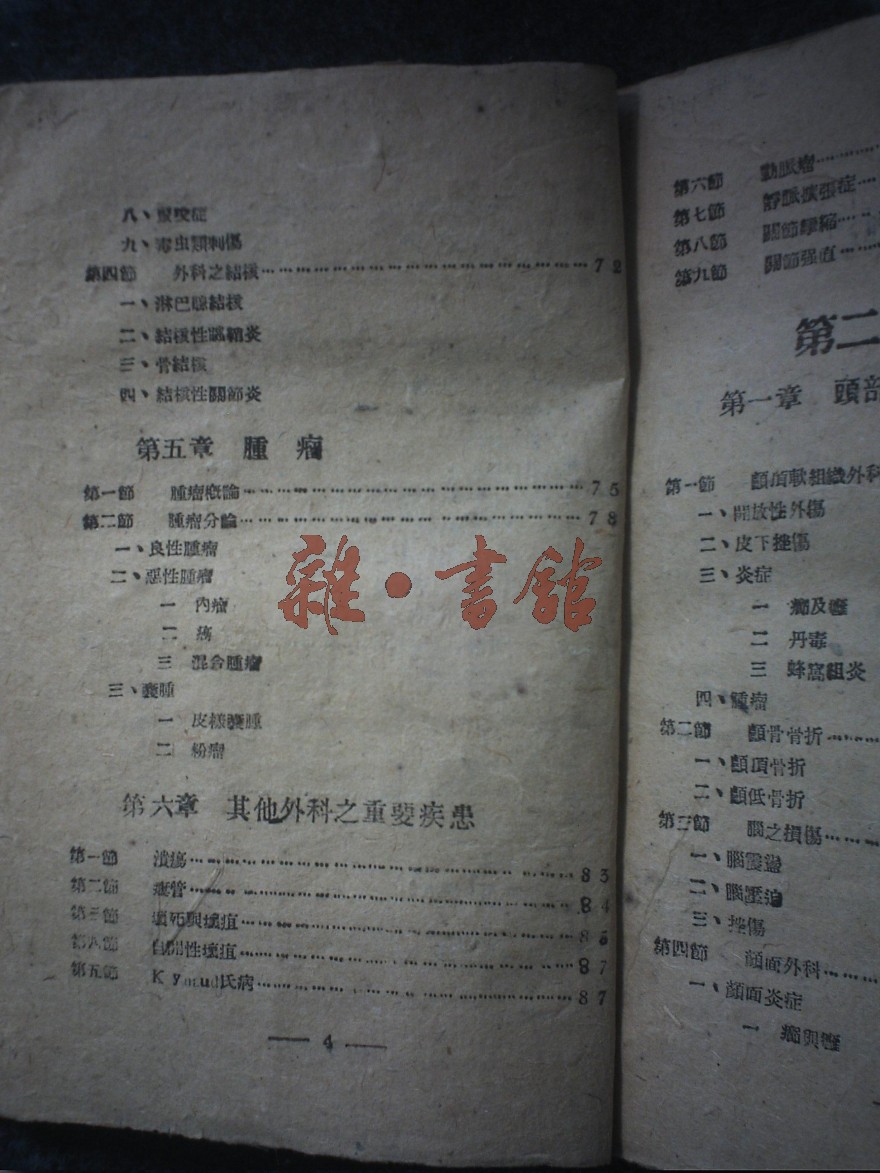 八、咬症
九、毒虫類刺傷
第四節 外科之結核 72
一、淋巴腺結核
二、結核性腱鞘炎
三、骨結核
四、結核性關節炎
第五章 腫瘤
第一節 腫瘤概論 75
第二節 腫瘤分論 78
一、良性腫瘤
二、惡性腫瘤
一 內瘤
二 癌
三 混合腫瘤
三、囊腫
一 皮樣囊腫
二 粉瘤
第六章 其他外科之重要疾患
第一節 潰瘍 83
第二節 瘻管 84
第三節 壞死與壞疽 85
第八節 自開性壞疽 87
第五節 氏病 87
— 4 —
雜·書館
第六節 動脈瘤
第七節 靜脈擴張症
第八節 關節攣縮
第九節 關節强直
第二
第一章 頭部
第一節 顱頂軟組織外科
一、開放性外傷
二、皮下挫傷
三、炎症
一 癤及癰
二 丹毒
三 蜂窩組炎
四、腫瘤
第二節 顱骨骨折
一、顱頂骨折
二、顱低骨折
第三節 腦之損傷
一、腦震盪
二、腦壓迫
三、挫傷
第四節 顏面外科
一、顏面炎症
一 癤與癰